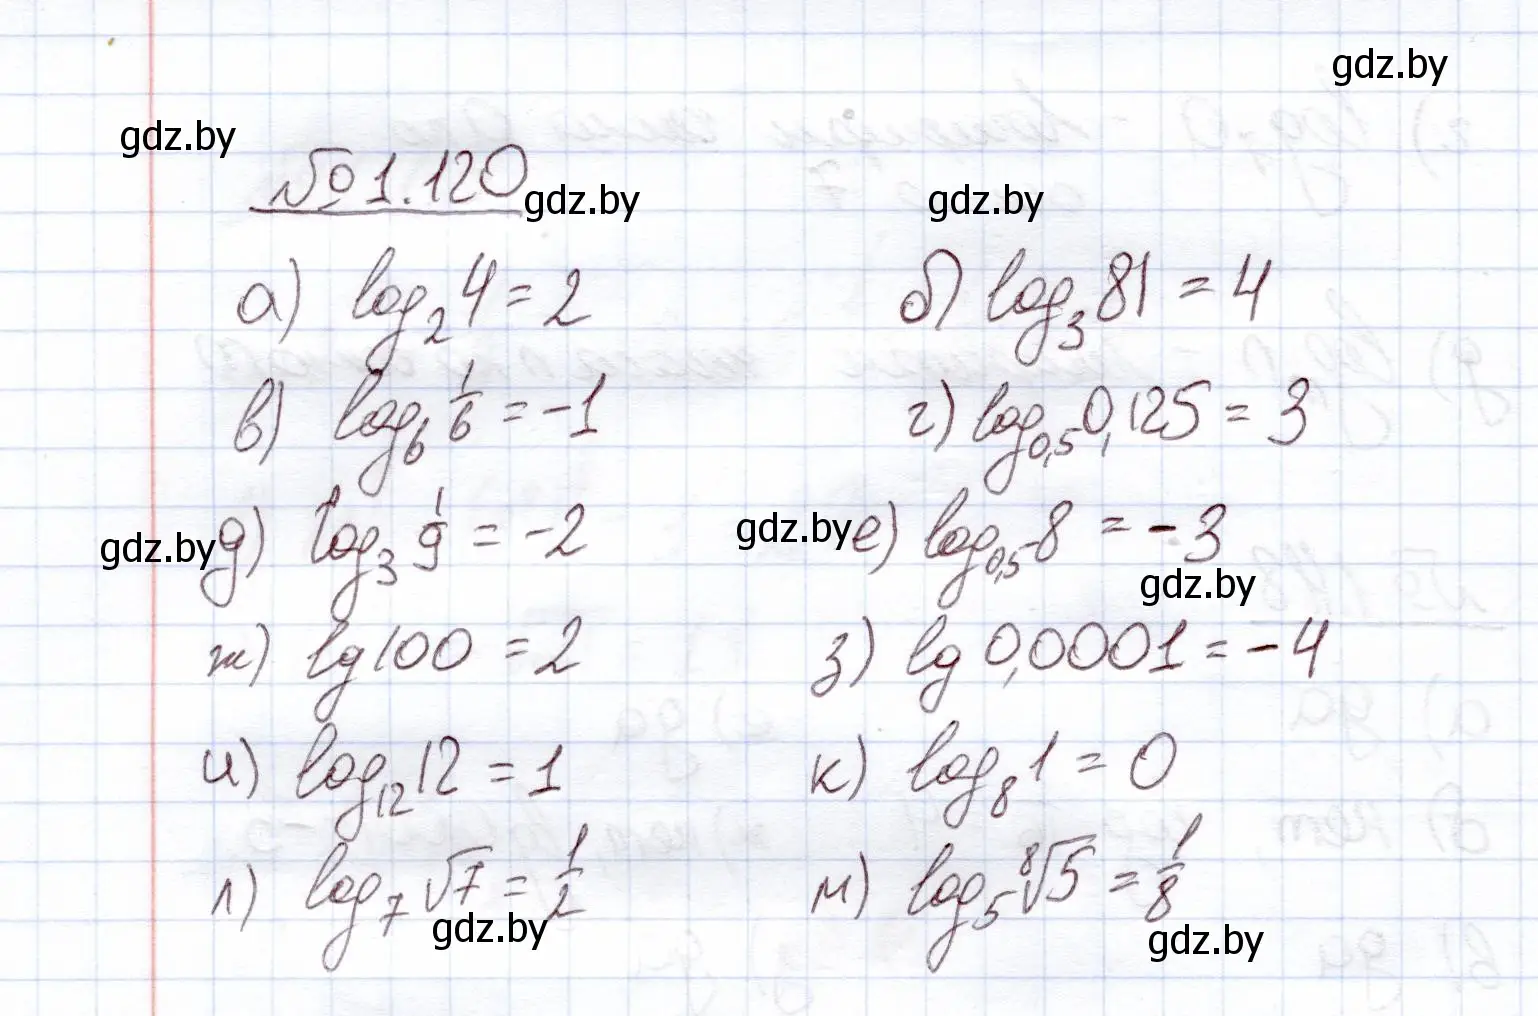 gdz.by
gdz.by
№1.120 gdz.by gdz.by
а) log₂4 = 2 б) log₃81 = 4
в) log₆ 1/6 = -1 г) log₀,₅0,125 = 3
gdz.by д) log₃ 1/9 = -2 gdz.by е) log₀,₅8 = -3
gdz.by
ж) lg100 = 2 з) lg0,0001 = -4
и) log₁₂12 = 1 к) log₈1 = 0
л) log₇√7 = 1/2 м) log₅⁸√5 = 1/8
gdz.by gdz.by